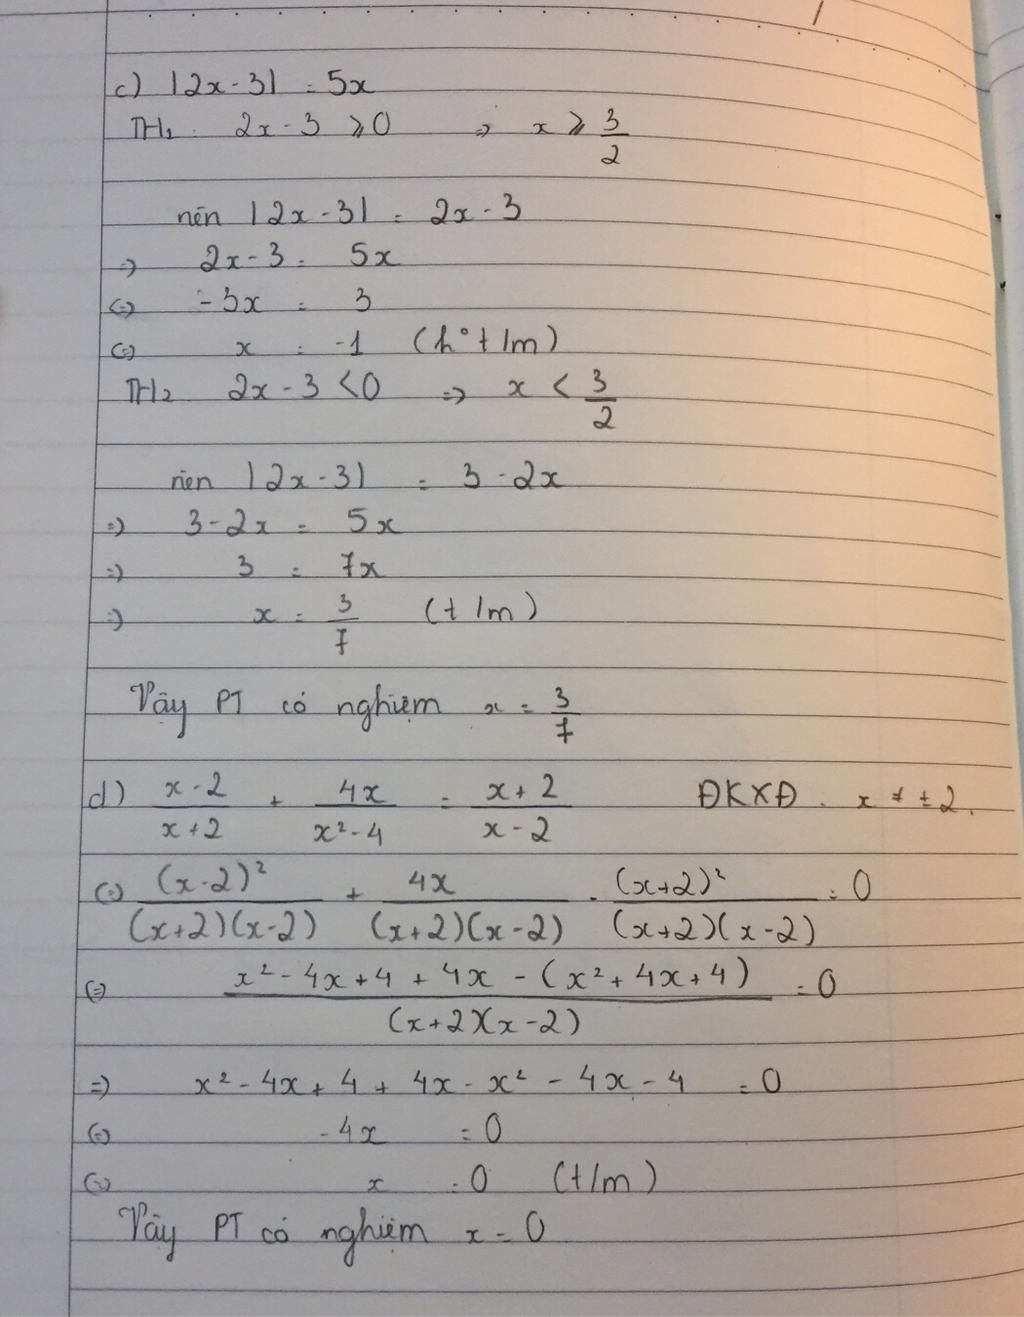 c) |2x-3| = 5x
TH1: 2x-3 ⩾ 0 ⇒ x ⩾ 3/2
nên |2x-3| = 2x-3
⇒ 2x-3 = 5x
⇔ -3x = 3
⇔ x = -1 (k° t/m)
TH2 2x-3 < 0 ⇒ x < 3/2
nên |2x-3| = 3-2x
⇒ 3-2x = 5x
⇒ 3 = 7x
⇒ x = 3/7 (t/m)
Vậy PT có nghiệm x = 3/7
d) (x-2)/(x+2) + 4x/(x²-4) = (x+2)/(x-2) ĐKXĐ. x ≠ ±2.
⇔ (x-2)²/((x+2)(x-2)) + 4x/((x+2)(x-2)) - (x+2)²/((x+2)(x-2)) = 0
⇔ (x²-4x+4+4x-(x²+4x+4))/((x+2)(x-2)) = 0
⇒ x²-4x+4+4x-x²-4x-4 = 0
⇔ -4x = 0
⇔ x = 0 (t/m)
Vậy PT có nghiệm x = 0